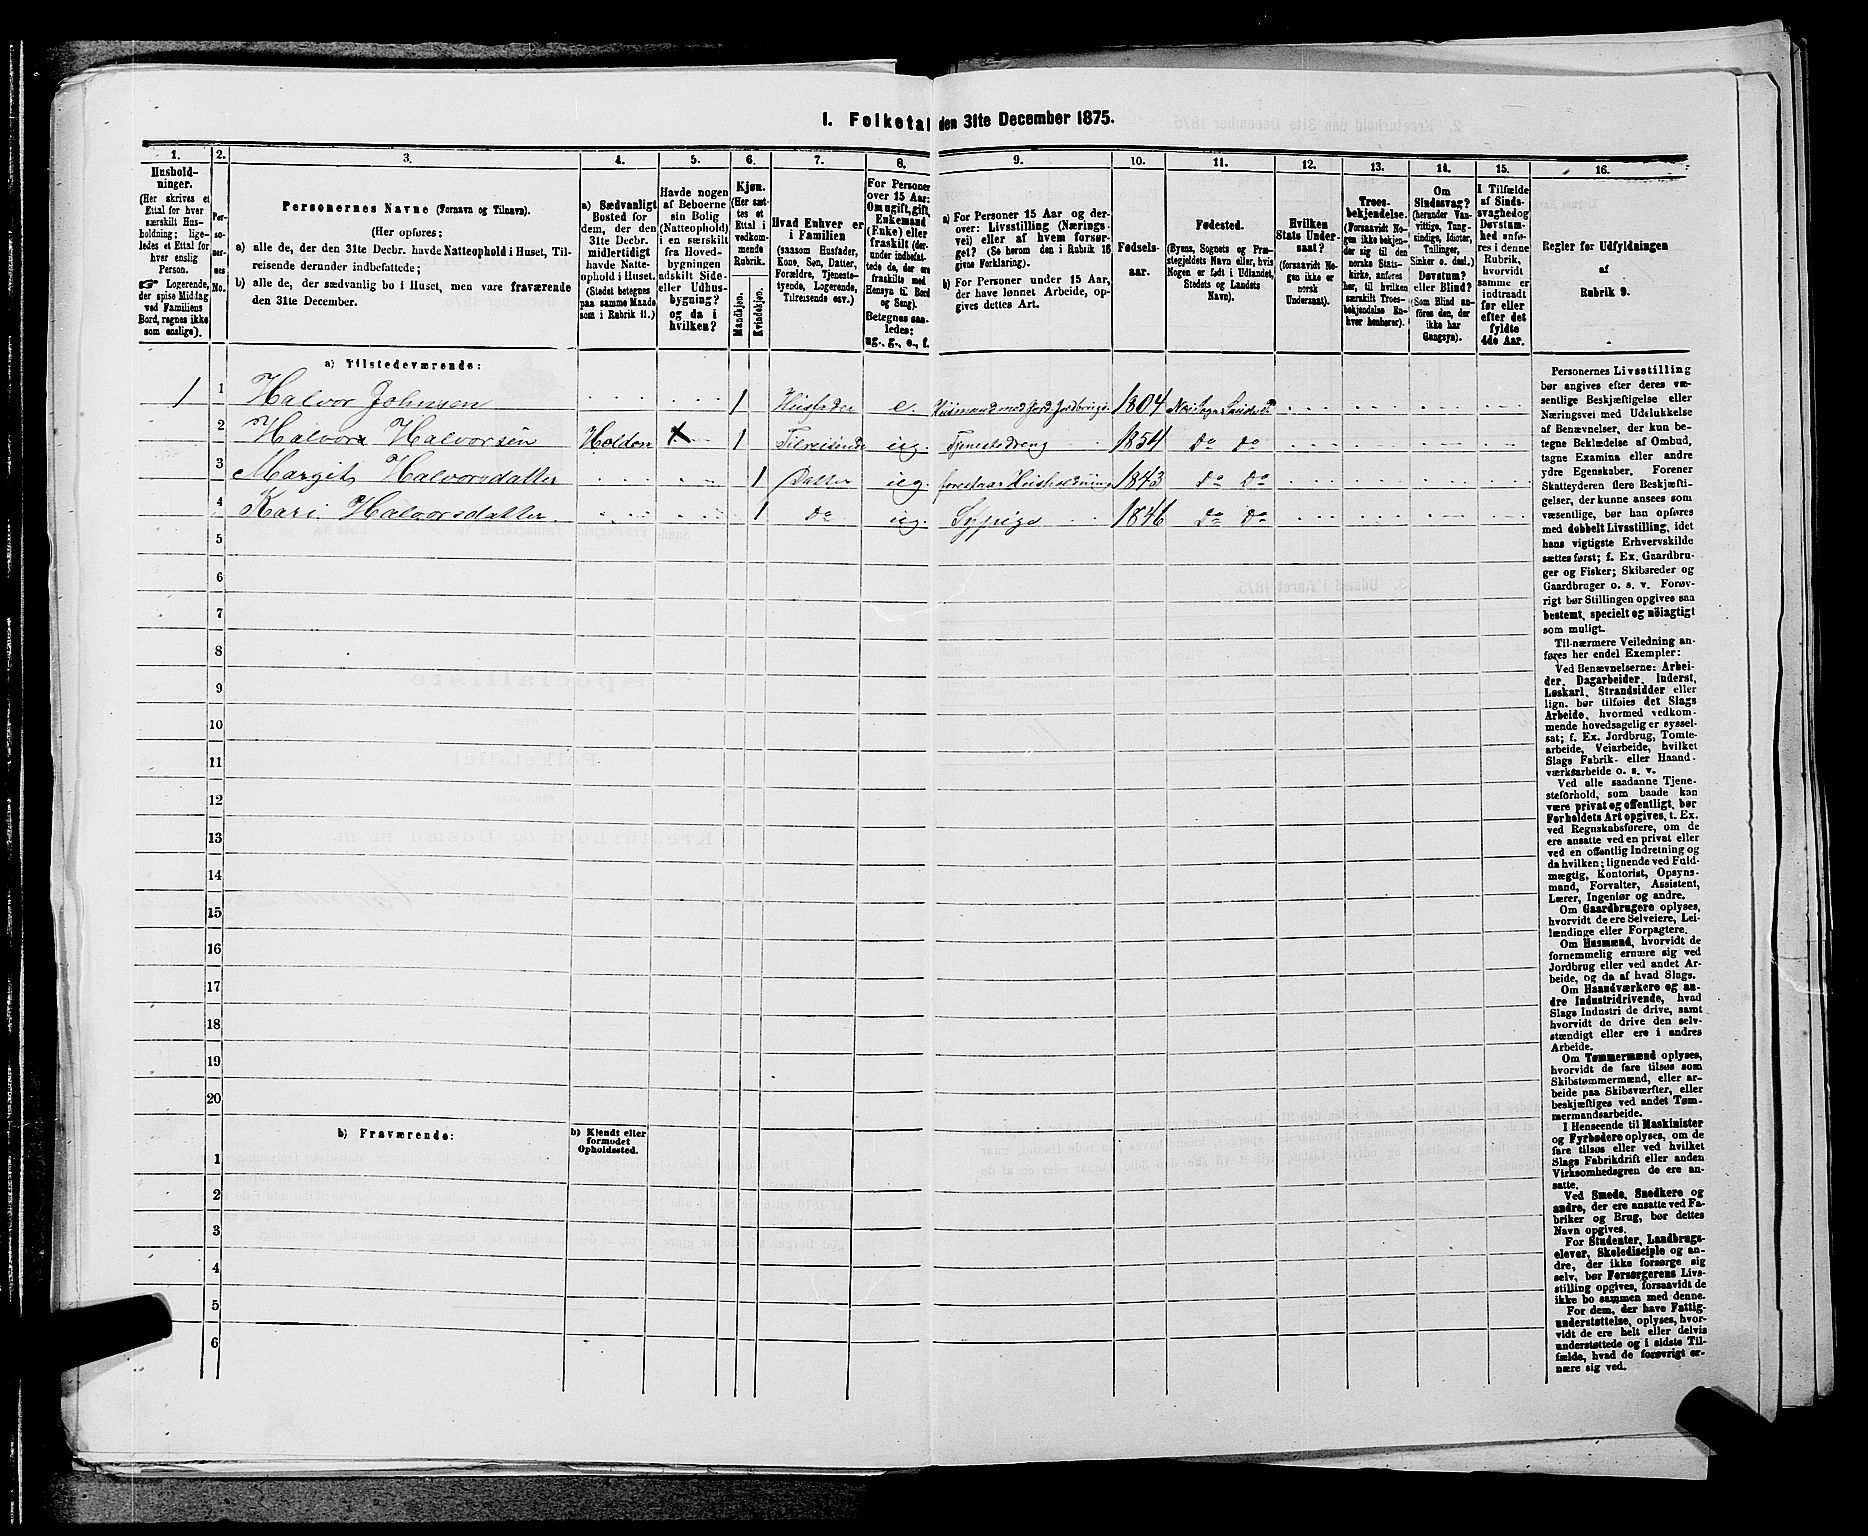 1. Folketal den 31te December 1875.
1. 2. 3. 4. 5. 6. 7. 8. 9. 10. 11. 12. 13. 14. 15. 16.
Hushold-
ninger.
(Her skrives et
Ettal for hver
særskilt Hus-
holdning; lige-
ledes et Ettal for
hver enslig
Person.
☞ Logerende,
der spise Middag
ved Familiens
Bord, regnes ikke
som enslige).
Per-
so-
ner-
nes
No.
Personernes Navne (Fornavn og Tilnavn).
(Her opføres:
a) alle de, der den 31te Decbr. havde Natteophold i Huset, Til-
reisende derunder indbefattede;
b) alle de, der sædvanlig bo i Huset, men vare fraværende
den 31te December.
a) Sædvanligt
Bosted for
dem, der den
31te Decbr.
midlertidigt
havde Natte-
ophold i Huset.
(Stedet betegnes
paa samme Maade
som i Rubrik 11.)
Havde nogen
af Beboerne
sin Bolig
(Natteophold)
i en særskilt
fra Hoved-
bygningen
adskilt Side-
eller Udhus-
bygning?
og da i
hvilken?
Kjøn.
(Her sæt-
tes et
Ettal i
vedkom-
mende
Rubrik.
Mandkjøn.
Kvindekjøn.
Hvad Enhver er
i Familien
(saasom Husfader,
Kone, Søn, Datter,
Forældre, Tjeneste-
tyende, Logerende,
Tilreisende osv.)
For Personer
over 15 Aar:
Om ugift, gift,
Enkemand
(Enke) eller
fraskilt (der-
under indbefat-
tede de, der ere
fraskilte med
Hensyn til Bord
og Seng).
Betegnes saa-
ledes:
ug., g., e., f.
a) For Personer 15 Aar og der-
over: Livsstilling (Nærings-
vei) eller af hvem forsør-
get? (Se herom den i Rubrik 16
givne Forklaring).
b) For Personer under 15 Aar,
der have lønnet Arbeide, op-
gives dettes Art.
Fødsels-
aar.
Fødested.
(Byens, Sognets og Præ-
stegjeldets Navn eller, hvis
Nogen er født i Udlandet,
Stedets og Landets
Navn).
Hvilken
Stats Under-
saat?
(forsaavidt No-
gen ikke er
norsk
Undersaat).
Troes-
bekjendelse.
(Forsaavidt No-
gen ikke bekjen-
der sig til den
norske Stats-
kirke, anføres
her, til hvilken
særskilt Troes-
bekjendelse En-
hver henhører).
Om
Sindssvag?
(herunder Van-
vittige, Tung-
sindige, Idioter,
Tullinger,
Sinker o. desl.)
Døvstum?
eller Blind?
(Som Blind an-
føres den, der
ikke har
Gangsyn).
I Tilfælde
af Sinds-
svaghed og
Døvstum-
hed anfø-
res i denne
Rubrik,
hvorvidt
samme er
indtraadt
før eller
efter det
fyldte
4de Aar.
Regler for Udfyldningen
af
Rubrik 9.
a) Tilstedeværende:
1 1 Halvor Johnsen 1 Husfader e. Husmand med Jord. Jordbruger 1804
2 Halvor Halvorsen Holden x 1 Tilreisende ug. Tjenestedreng 1854 Do Do
3 Margit Halvorsdatter 1 Datter ug. forestaar Husholdning 1843 Do Do
4 Kari Halvorsdatter. 1 Do ug. Sypige 1846 Do Do
5
6
7
8
9
10
11
12
13
14
15
16
17
18
19
20
b) Fraværende:
b) Kjendt eller
formodet
Opholdssted.
1
2
3
4
5
6
Personernes Livsstilling
bør angives efter deres væ-
sentlige Beskjæftigelse eller
Næringsvei med Udelukkelse
af Benævnelser, der kun be-
tegne Beklædelse af Ombud,
tagne Examina eller andre
ydre Egenskaber. Forener
Skatteyderen flere Beskjæfti-
gelser, der kunne ansees som
væsentlige, bør han opføres
med dobbelt Livsstilling, idet
hans vigtigste Erhvervskilde
sættes først; f. Ex. Gaardbru-
ger og Fisker; Skibsreder og
Gaardbruger o. s. v. Forøv-
rigt bør Stillingen opgives saa
bestemt, specielt og nöiagtigt
som muligt.
Til nærmere Veiledning an-
føres her endel Exempler:
Ved Benævnelserne: Arbei-
der, Dagarbeider, Inderst,
Løskarl, Strandsidder eller
lign. bør tilføies det Slags
Arbeide, hvormed vedkom-
mende hovedsagelig er syssel-
sat; f. Ex. Jordbrug, Tomte-
arbeide, Veiarbeide, hvilket
Slags Fabrik- eller Haand-
værksarbeide o. s. v.
Ved alle saadanne Tjene-
steforhold, som baade kan
være privat og offentligt, bør
Forholdets Art opgives, t. Ex.
ved Regnskabsførere, om de
ere ansatte ved en privat eller
ved en offentlig Indretning og
da hvilken; lignende ved Fuld-
mægtig, Kontorist, Opsyns-
mand, Forvalter, Assistent,
Lærer, Ingeniør og andre.
Om Gaardbrugere oplyses,
hvorvidt de ere Selveiere, Lei-
lændinge eller Forpagtere.
Om Husmænd, hvorvidt de
fornemmelig ernære sig ved
Jordbrug eller ved andet Ar-
beide, og da af hvad Slags.
Om Haandværkere og an-
dre Industridrivende, hvad
Slags Industri de drive, samt
hvorvidt de drive den selv-
stændigt eller ere i andres
Arbeide.
Om Tømmermænd oplyses,
hvorvidt de fare tilsøs som
Skibstømmermænd, eller ar-
beide paa Skibsværfter, eller
beskjæftiges ved andet Tøm-
mermandsarbeide.
I Henseende til Maskinister
og Fyrbødere oplyses, om de
fare tilsøs eller ved hvilket
Slags Fabrikdrift eller anden
Virksomhedsgren de ere an-
satte.
Ved Smede, Snedkere og
andre, der ere ansatte ved Fa-
briker og Brug, bør dettes
Navn opgives.
For Studenter, Landbrugs-
elever, Skoledisciple og an-
dre, der ikke forsørge sig
selv, bør Forsørgerens Livs-
stilling opgives, forsaavidt de
ikke bo sammen med denne.
For dem, der have Fattig-
understøttelse, oplyses, hvor-
vidt de ere helt eller delvis
understøttede og i sidste Til-
fælde, hvad de forøvrigt er-
nære sig ved.